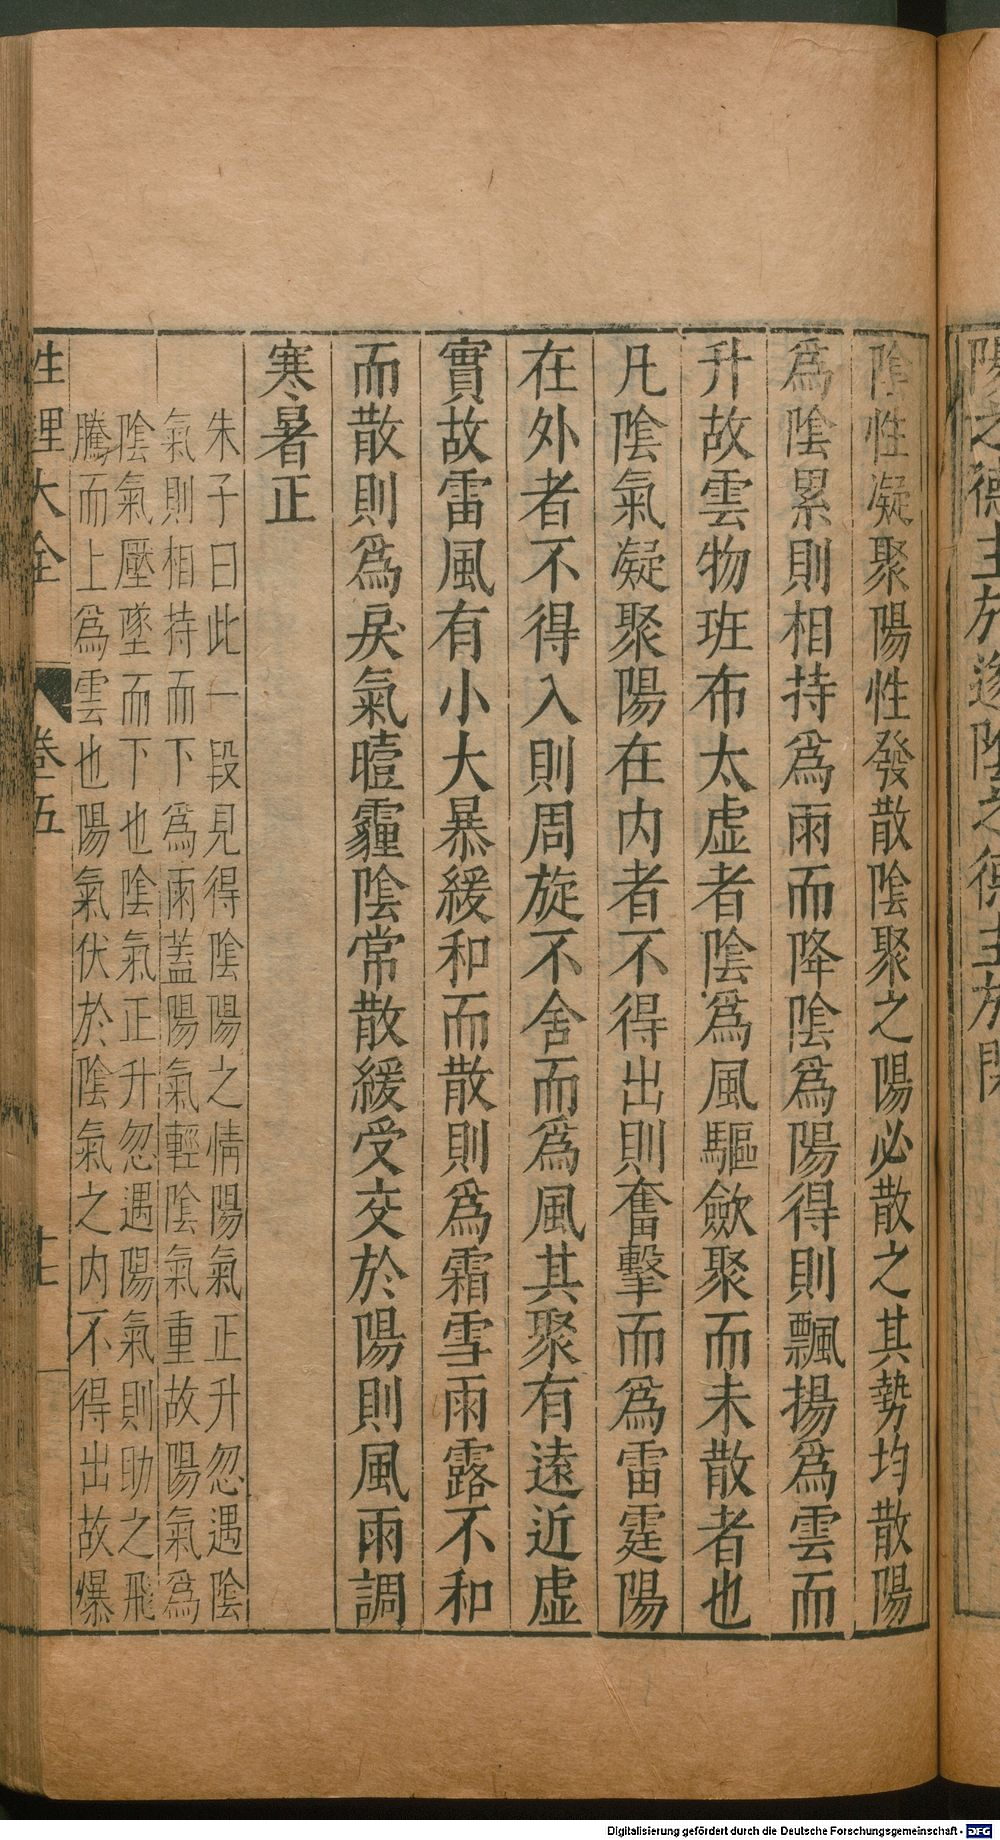 陽之德主於遂陰之德主於閉
陰性凝聚陽性發散陰聚之陽必散之其勢均散陽
爲陰累則相持爲雨而降陰爲陽得則飄揚爲雲而
升故雲物班布太虛者陰爲風驅歛聚而未散者也
凡陰氣凝聚陽在内者不得出則奮擊而爲雷霆陽
在外者不得入則周旋不舍而爲風其聚有遠近虛
實故雷風有小大暴緩和而散則爲霜雪雨露不和
而散則爲戾氣曀霾陰常散緩受交於陽則風雨調
寒暑正
朱子曰此一段見得陰陽之情陽氣正升忽遇陰
氣則相持而下爲雨蓋陽氣輕陰氣重故陽氣爲
陰氣壓墜而下也陰氣正升忽遇陽氣則助之飛
騰而上爲雲也陽氣伏於陰氣之内不得出故爆
性理大全 卷五
Digitalisierung gefördert durch die Deutsche Forschungsgemeinschaft - DFG